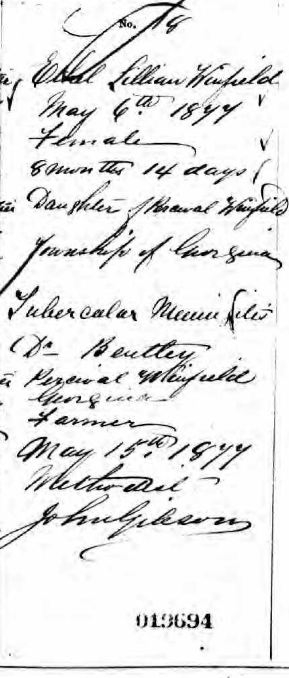 No. 8
Ethel Lillian Winfield
May 6th 1877
Female
8 months 14 days
Daughter of Percival Winfield
Township of Georgina
Tubercular Meningitis
Dr Bentley
Percival Winfield
Georgina
Farmer
May 15th 1877
Methodist
John Gibson
019694